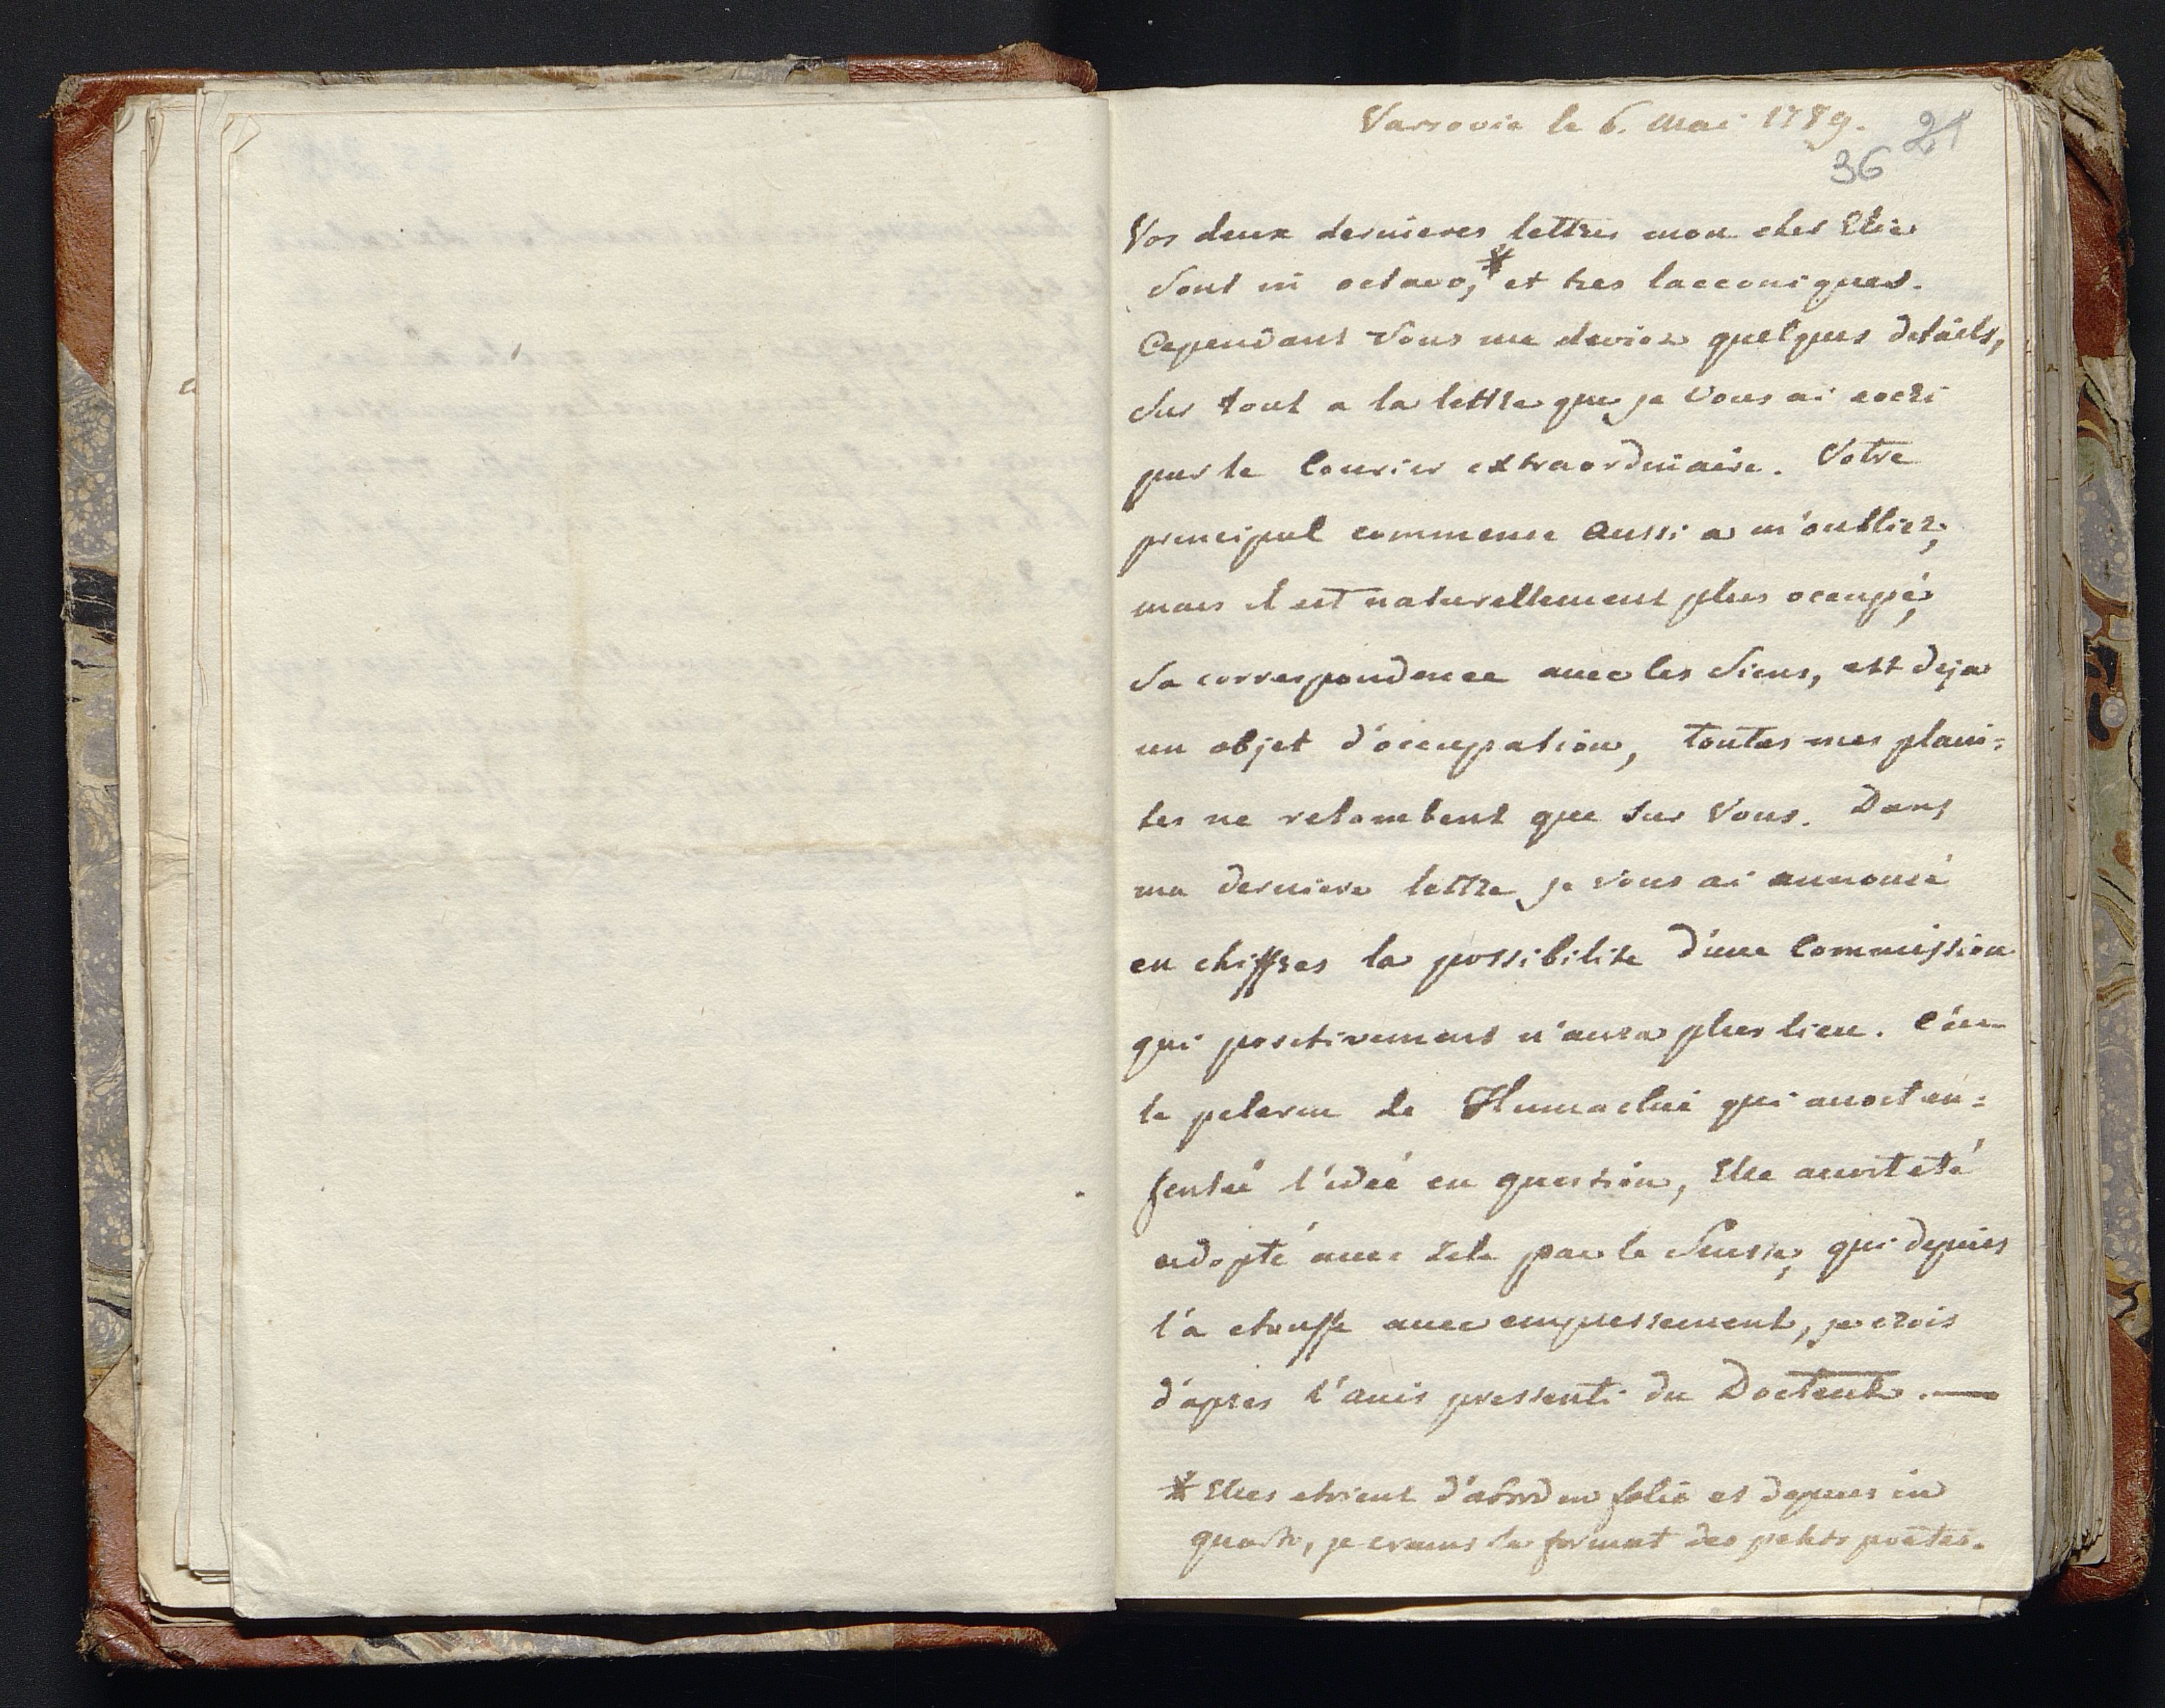 Varsovie le 6. Mai 1789.
21
36
Vos deux dernieres lettres mon cher Elie
Sont in octavo,* et tres lacconiques.
Cependant Vous me deviez quelques details,
Sur tout a la lettre que je Vous ai ecri
par le Courier extraordinaire. Votre
principal commence aussi a m'oublier,
mais il est naturellement plus occupé,
Sa correspondence avec les Siens, est deja
un objet d'occupation, toutes mes plain=
tes ne retombent que sur Vous. Dans
ma derniere lettre je vous ai annoncé
en chiffres la possibilite d'une Commission
qui positivement n'aura plus lieu. C'eu
le pelerin de qui avoit en=
fenteé l'ideé en question, Elle avoit eté
adopté avec zele par le Suisse, qui depuis
l'a etouffe avec empressement, je crois
d'apres l'avis pressenti du Docteur. —
* Elles etoient d'abord en folio et depuis in
quarto, je crains le format des petits poëtes.